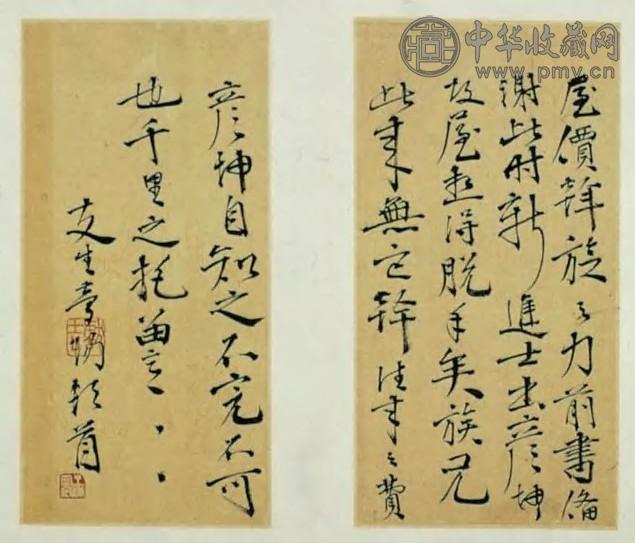 中华收藏网
www.pmv.cn
屋價斡旋之力前書備
謝此时新進士出彦坤
故屋想得脱手矣族兄
此来無它幹往来之費
彦坤自知之不完不可
也千里之托留意、、
友生頓首